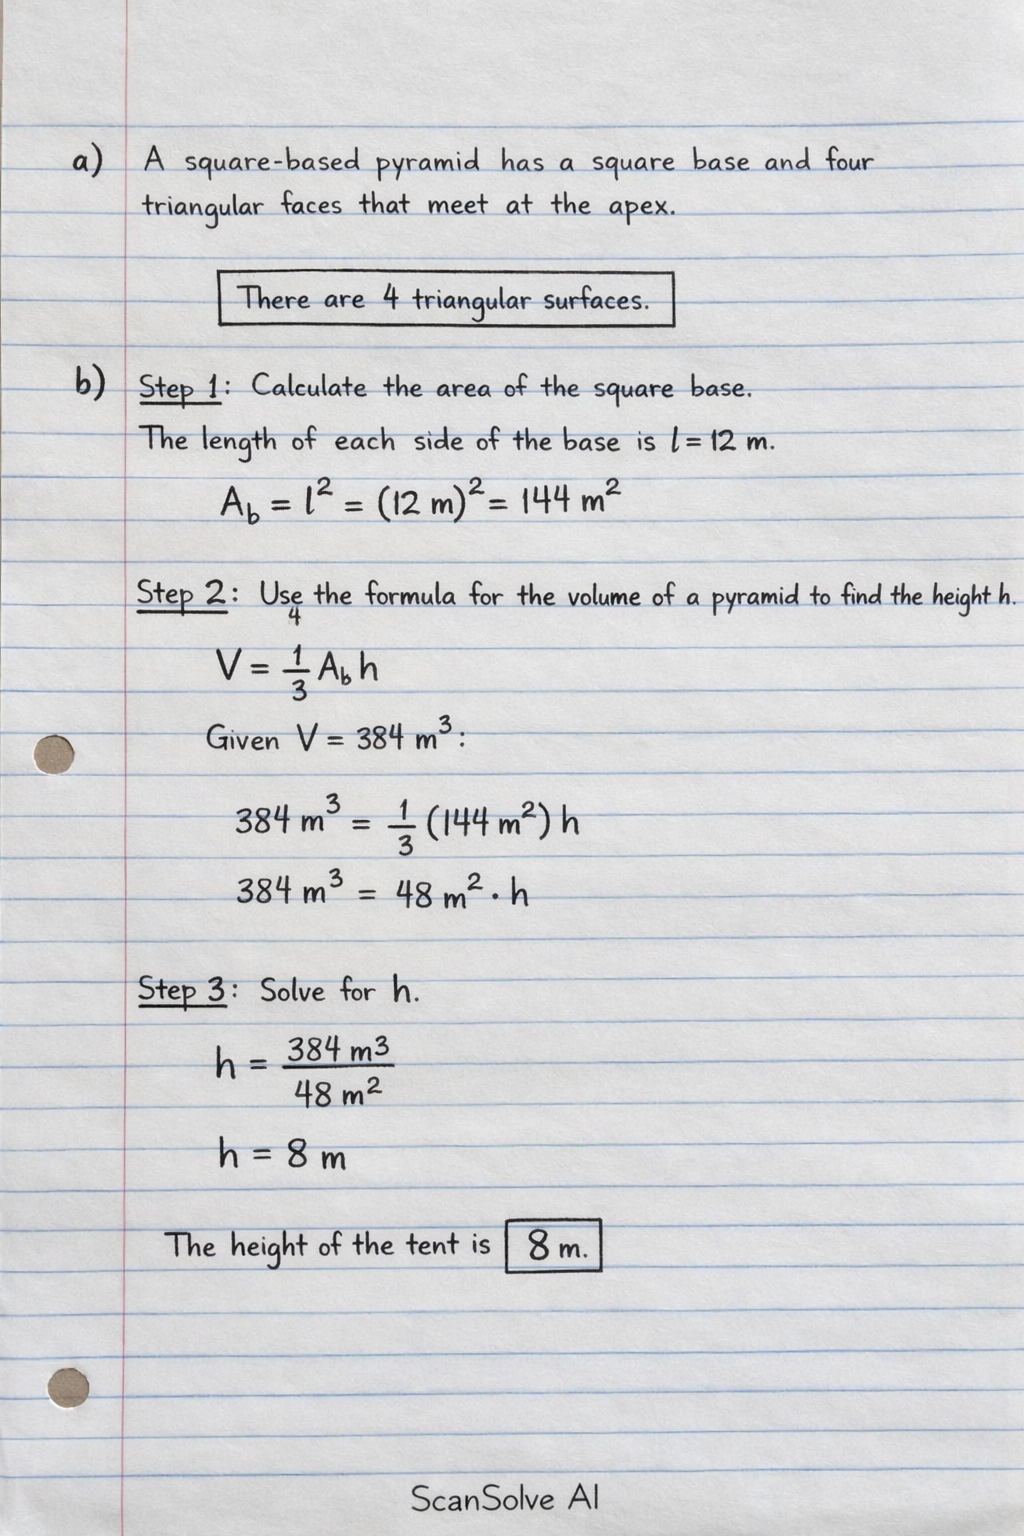 a) A square-based pyramid has a square base and four
triangular faces that meet at the apex.
There are 4 triangular surfaces.
b) Step 1: Calculate the area of the square base.
The length of each side of the base is l = 12 m.
A_b = l² = (12 m)² = 144 m²
Step 2: Use the formula for the volume of a pyramid to find the height h.
4
V = 1/3 A_b h
Given V = 384 m³:
384 m³ = 1/3 (144 m²) h
384 m³ = 48 m² · h
Step 3: Solve for h.
h = 384 m3 / 48 m²
h = 8 m
The height of the tent is 8 m.
ScanSolve AI